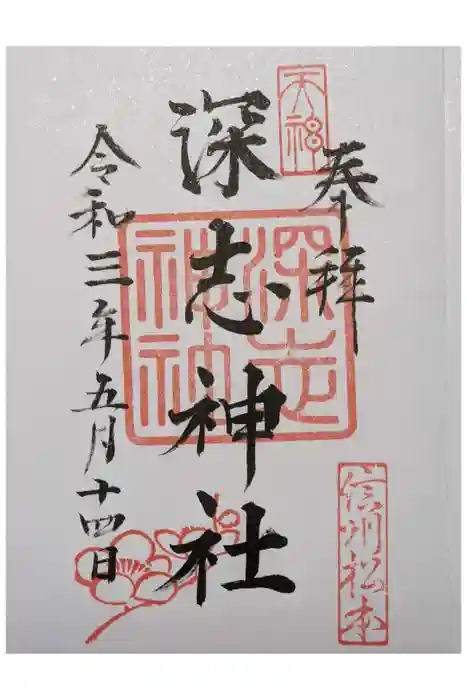 奉拝
天神
深志神社
深志神社
令和三年五月十四日
信州松本